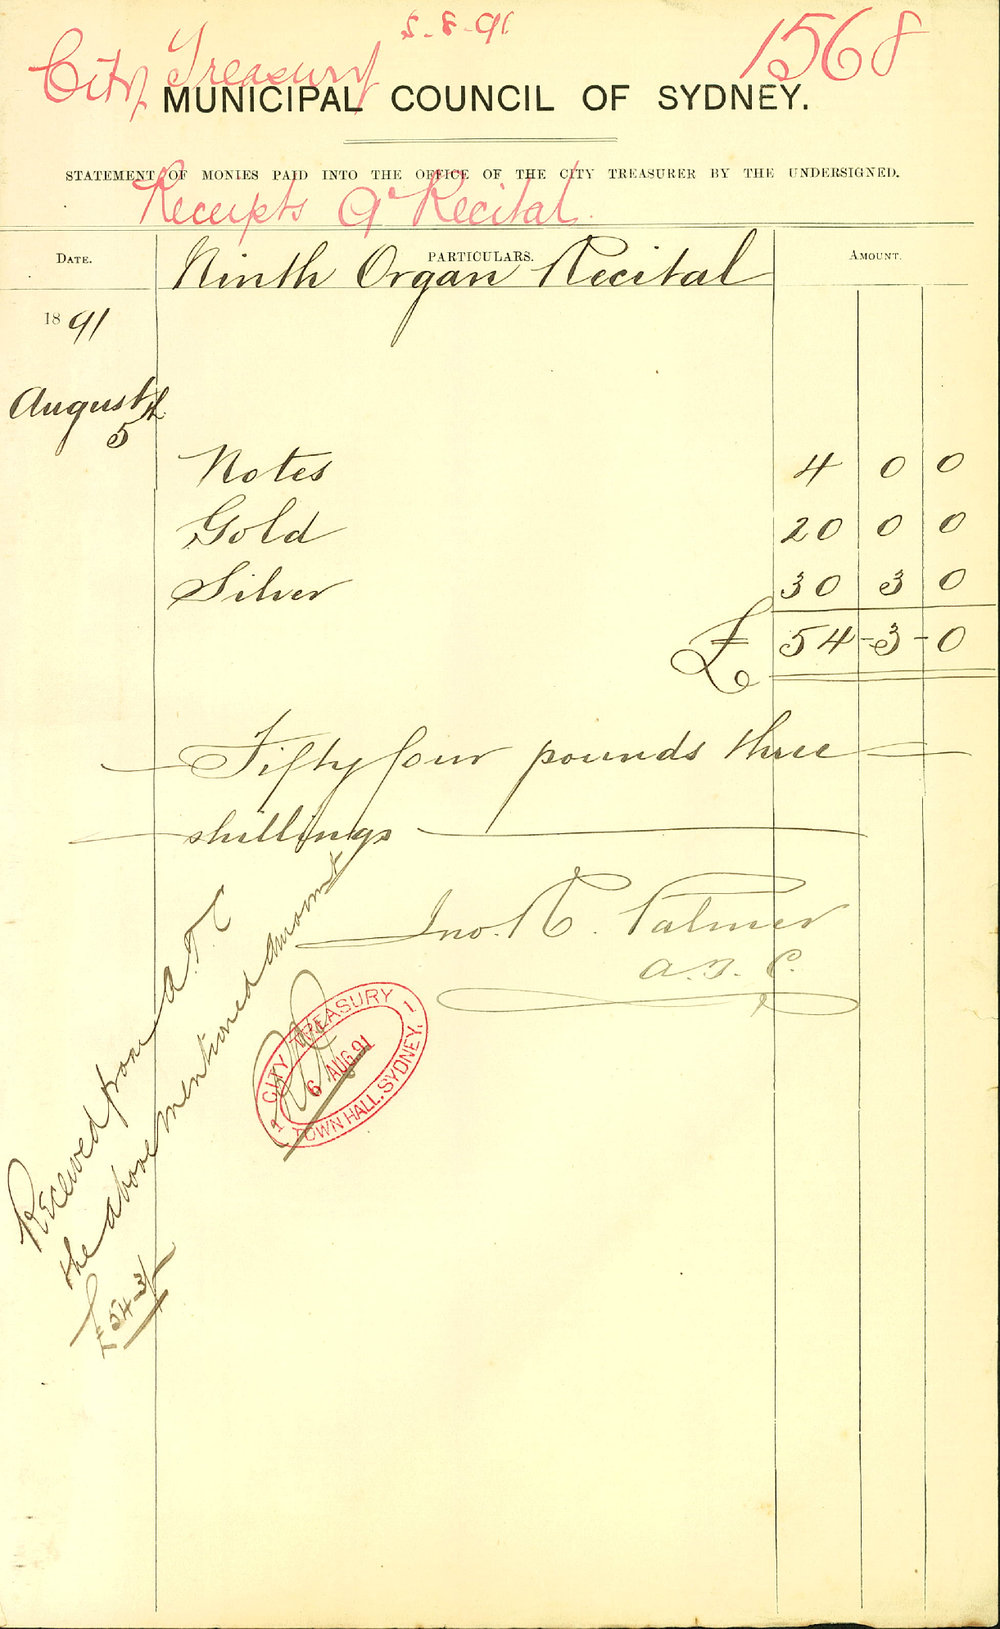 5-8-91
1568
City Treasury
MUNICIPAL COUNCIL OF SYDNEY.
STATEMENT OF MONIES PAID INTO THE OFFICE OF THE CITY TREASURER BY THE UNDERSIGNED.
Receipts Gr Recital
DATE. PARTICULARS. AMOUNT.
Ninth Organ Recital
18 91
August 5th
Notes 4 0 0
Gold 20 0 0
Silver 30 3 0
£ 54-3-0
Fifty four pounds three
shillings
Jno. R. Palmer
A.T.C.
Received from A.T.C
the above mentioned amount
£54-3/
1 CITY TREASURY 1
6 AUG.91
TOWN HALL. SYDNEY.